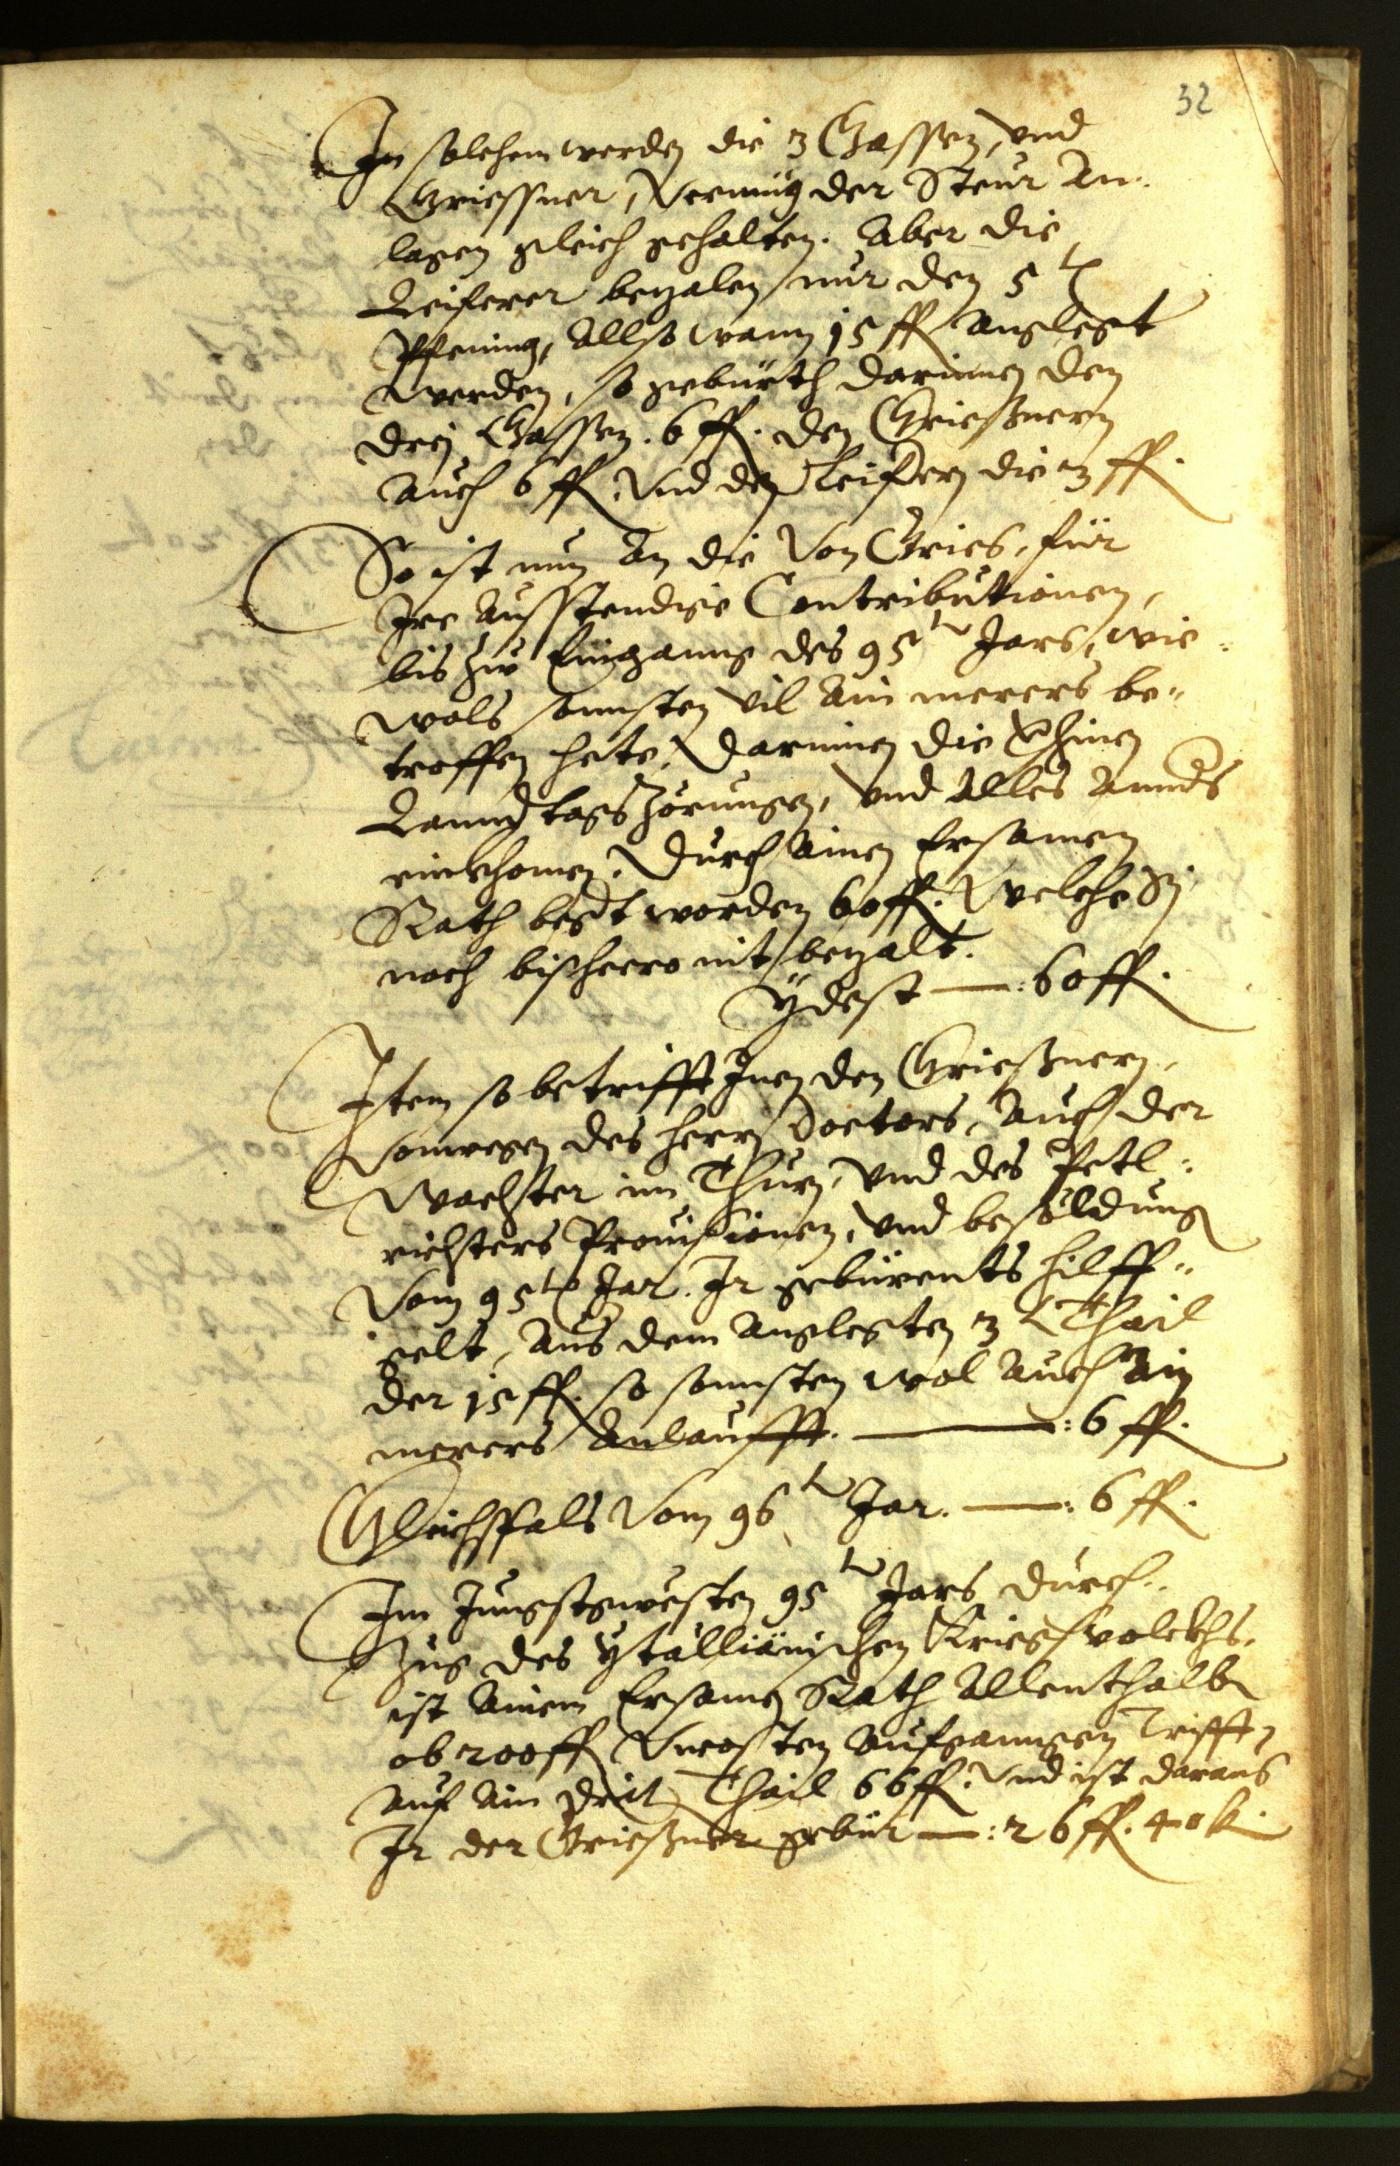 32
In solchem werden die 3 Gassen, vnd
Griessner, Vermüg der Steur An-
lagen gleich gehalten. Aber die
Leiferer bezalen nur den 5t
Pfening, Allso wann 15 ff angelegt
werden, so gebürth darinnen den
drej Gassen . 6 ff. den Grießnern
auch 6 ff. Vnd den Leifern die 3 ff.
So ist nun An die Von Gries, für
Ire Ausstendige Contributionen,
bis zu Einganng des 95tn Jars, wie-
wols sonnsten vil Ain merers be-
troffen hete, darinnen die
Lanndtags Zörungen, vnd Alles Annds
einkhomen. Durch Ainen Ersamen
Rath worden 60 ff. Welche Sj
noch bisheero nit bezalt.
Ydest —: 60 ff.
Item so betrifft Inen den Grießnern,
Vonwegen des herrn Doctors, Auch der
Wachter im Thurn, vnd des Petl-
richters Prouisionen, vnd besoldung
Vom 95tn Jar. Ir gebürents hilff-
gelt, Aus dem Anglegten 3t Thail
der 15 ff. so sonnsten wol Auch Ain
merers Anlaufft. —: 6 ff.
Gleichsfals Vom 96tn Jar. —: 6 ff.
Im Jungstgwesten 95tn Jars durch-
Zug des Ytalliänischen Kriegsvolckhs,
ist Ainem Ersamen Rath Allenthalbn
ob 200 ff Vncosten Aufganngen Trifft,
Auf Ain drit Thail 66 ff. Vnd ist daraus
Ir der Grießner gebür —: 26 ff. 40 k.